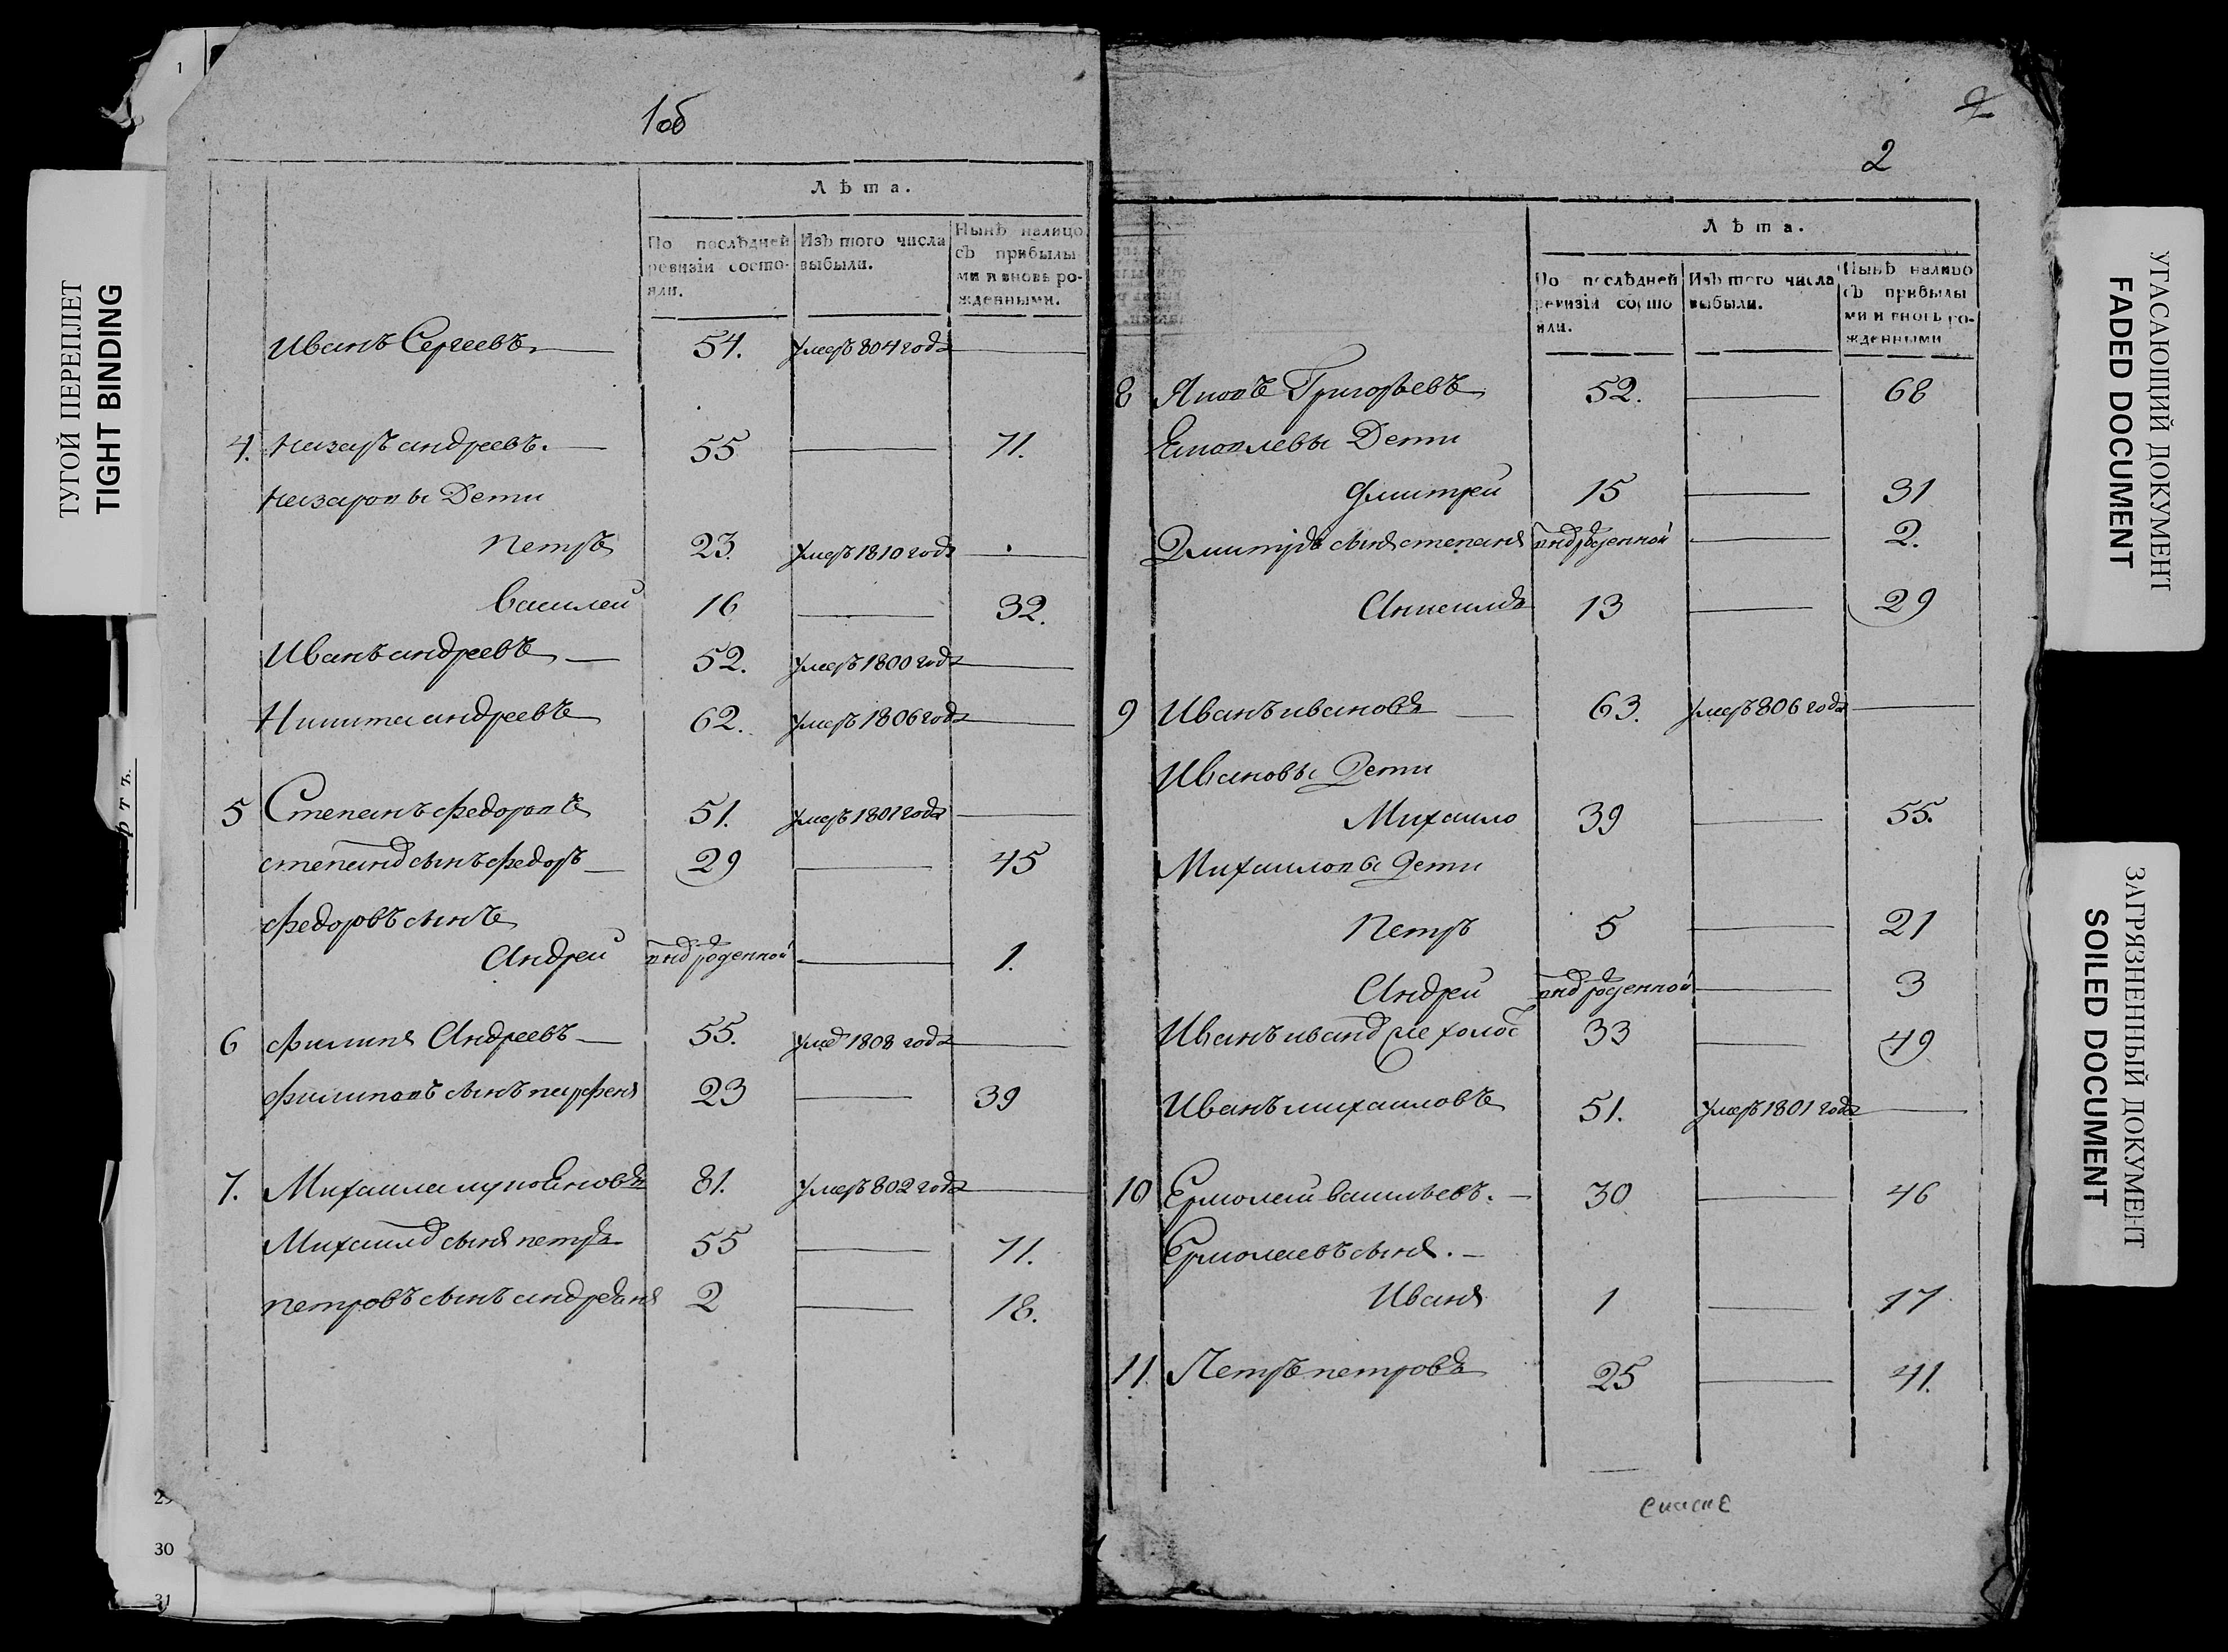 1
ТУГОЙ ПЕРЕПЛЕТ
TIGHT BINDING
1об
Лѣта.
По послѣдней ревизіи состояли.
Изъ того числа выбыли.
Нынѣ налицо съ прибылыми и вновь рожденными.
Иванъ Сергеевъ 54. умеръ 804 года
4. Назаръ андреевъ. 55 71.
Назаровы Дети
петръ 23. умеръ 1810 года
василей 16 32.
Иванъ андреевъ 52. умеръ 1800 года
Никита андреевъ 62. умеръ 1806 года
5 Степанъ федоровъ 51. умеръ 1801 года
степанов сынъ федоръ 29 45
федоровъ сынъ
Андрей вновь рожденной 1.
6 филипъ Андреевъ 55. умер 1808 года
филиповъ сынъ парфенъ 23 39
7. Михаила лукояновъ 81. умеръ 802 года
Михаилов сынъ петръ 55 71.
петровъ сынъ андреянъ 2 18.
29
30
31
2
Лѣта.
По послѣдней ревизіи состояли.
Изъ того числа выбыли.
Нынѣ налицо съ прибылыми и вновь рожденными
8 Яковъ Григорьевъ 52. 68
Яковлевы Дети
Дмитрей 15 31
Дмитрев сынъ степанъ вновь рожденной 2.
Анисимъ 13 29
9 Иванъ ивановъ 63. умеръ 806 года
Ивановы Дети
Михаило 39 55.
Михаиловы Дети
Петръ 5 21
Андрей вновь рожденной 3
Иванъ иванов 33 49
Иванъ михаиловъ 51. умеръ 1801 года
10 Ермолай васильевъ. 30 46
Ермолаевъ сынъ.
Иванъ 1 17
11 Петръ петровъ 25 41.
УГАСАЮЩИЙ ДОКУМЕНТ
FADED DOCUMENT
ЗАГРЯЗНЕННЫЙ ДОКУМЕНТ
SOILED DOCUMENT